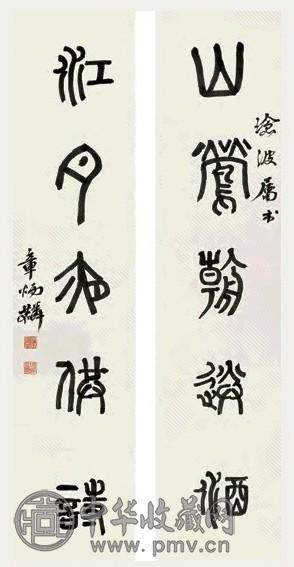 山鶯朝送酒
滄波屬书
江月夜供詩
章炳麟
中华收藏网
www.pmv.cn